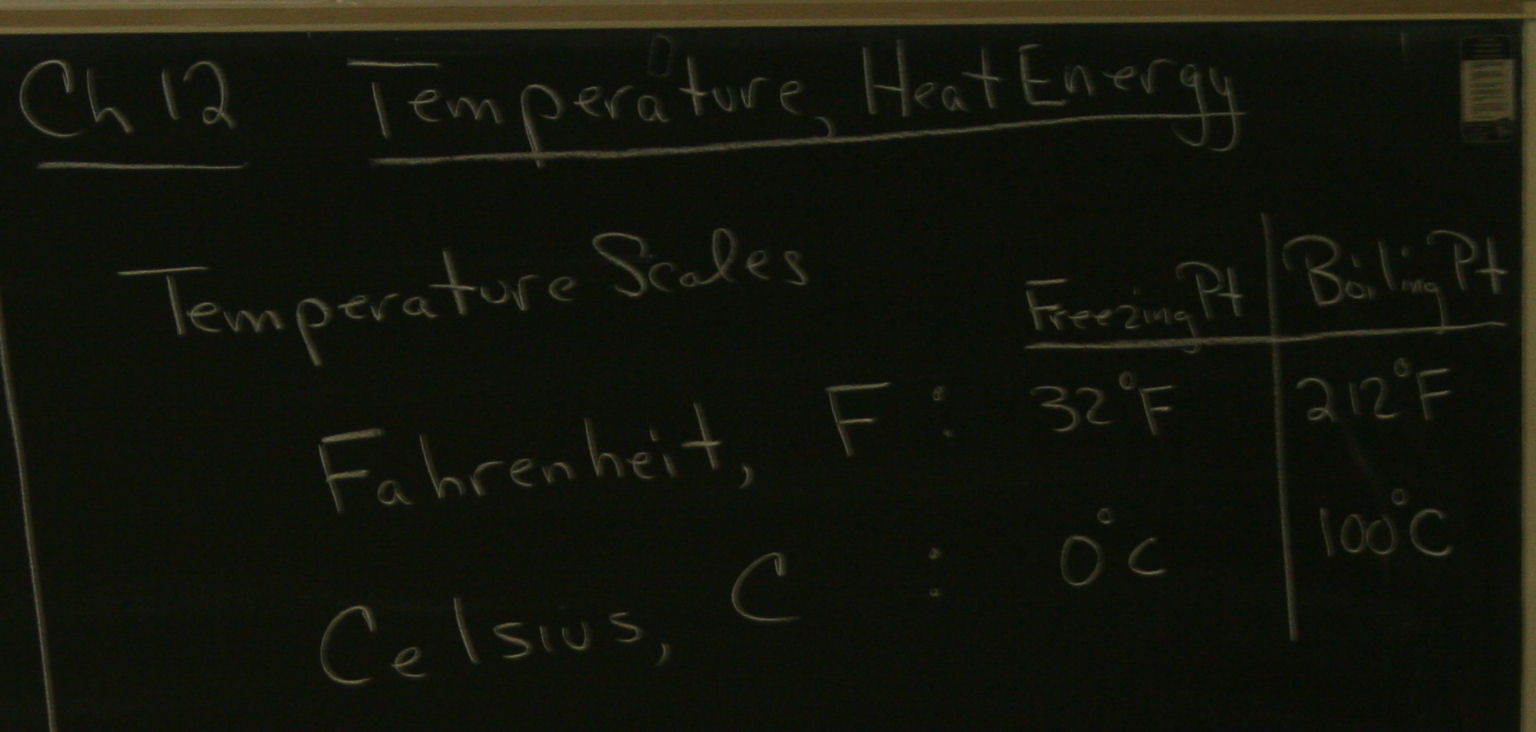 Ch 12 Temperature, Heat Energy
Temperature Scales
Freezing Pt Boiling Pt
Fahrenheit, F : 32°F 212°F
Celsius, C : 0°C 100°C